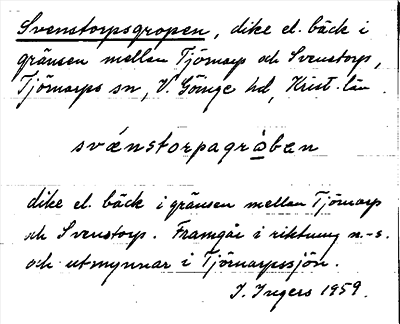 Svenstorpsgropen, dike el. bäck i
gränsen mellan Tjörnarp och Svenstorp,
Tjörnarps sn, V. Göinge hd, Krist. län.
svǽnstorpagråb̲æn
dike el. bäck i gränsen mellan Tjörnarp
och Svenstorp. Framgår i riktning n.-s.
och utmynnar i Tjörnarpssjön.
I. Ingers 1959.